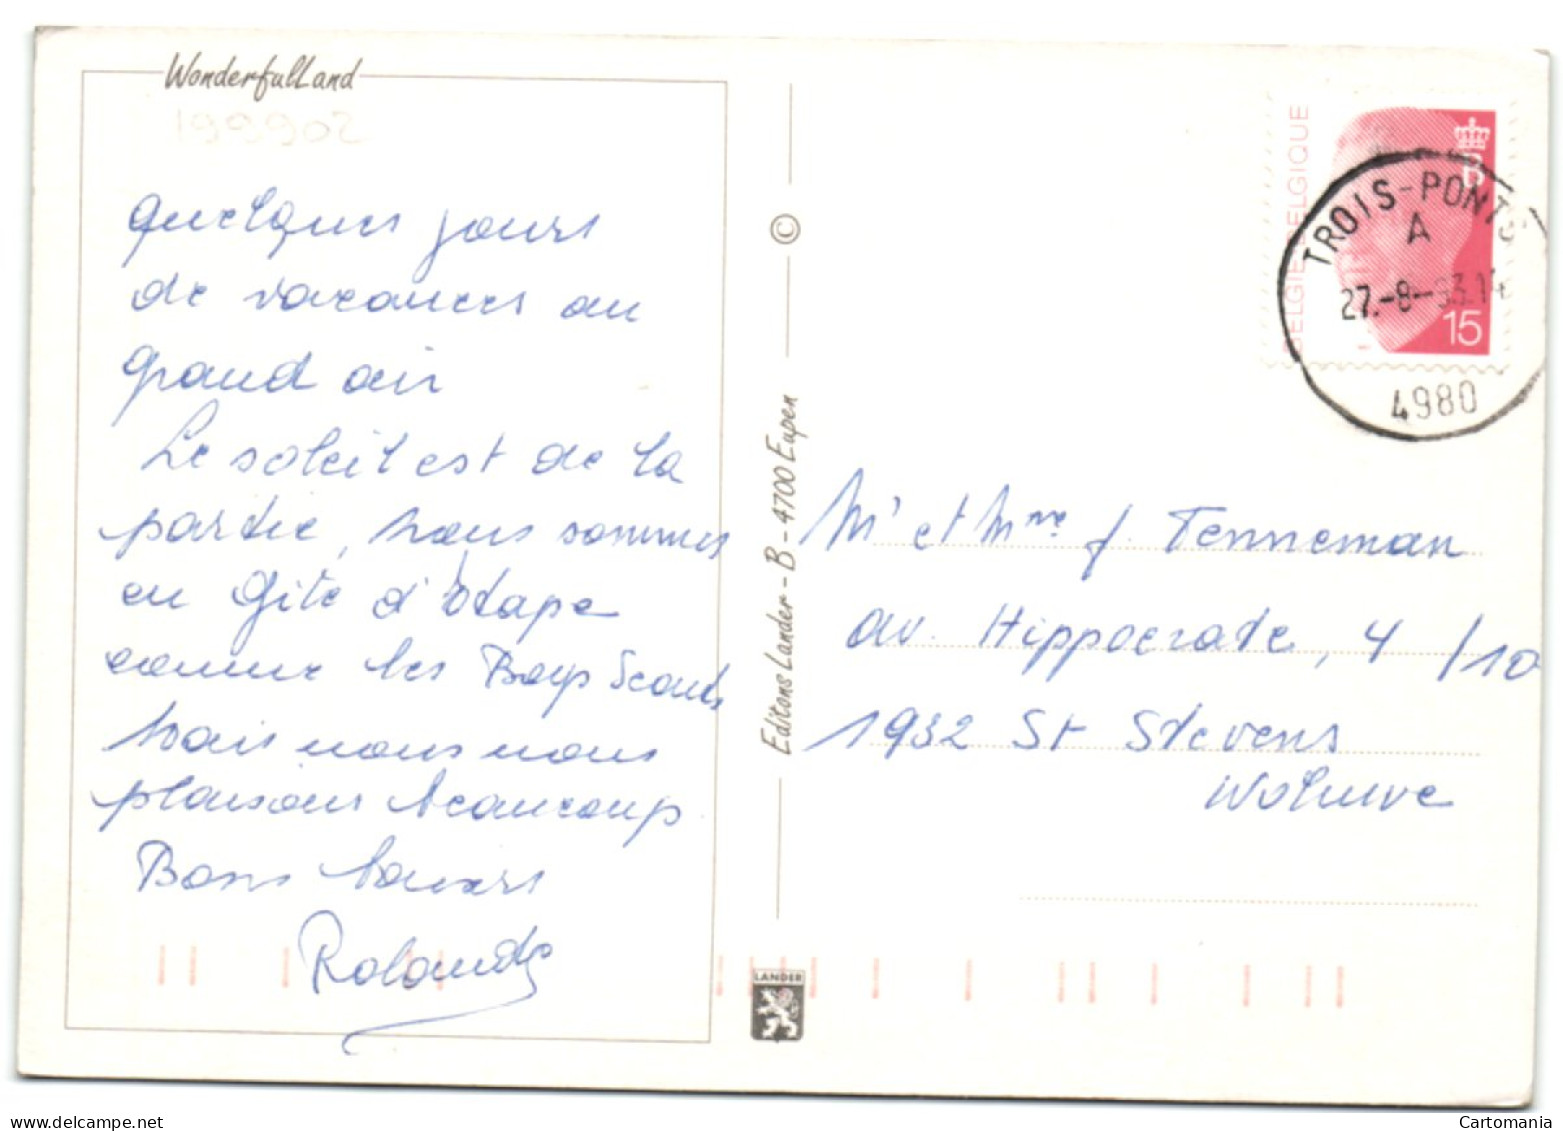 WonderfulLand
199902
quelques jours
de vacances au
grand air
Le soleil est de la
partie, nous sommes
en gîte d'étape
comme les Boys Scouts
Mais nous nous
plaisons beaucoup
Bons baisers
Rolande
©
Editons Lander - B - 4700 Eupen
LANDER
BELGIE BELGIQUE
B
15
TROIS-PONTS
A
27.-8-93.14
4980
Mr et Mme J. Tenneman
av. Hippocrate, 4/10
1932 St Stevens
Woluwe
www.delcampe.net
Cartomania